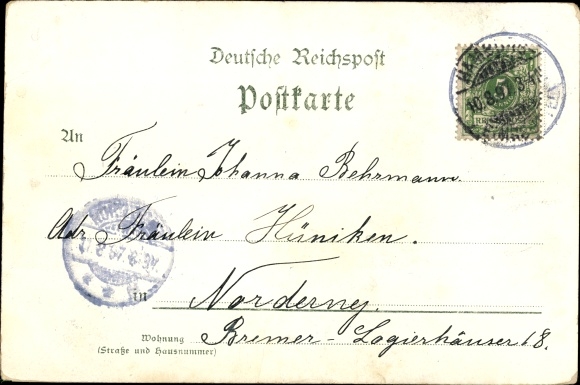 Deutsche Reichspost
Postkarte
An
Fräulein Johanna Behrmann.
Adr. Fräulein Hüniken.
in Norderney.
Wohnung Bremer-Logierhäuser 8.
(Straße und Hausnummer)
5
10.8.97